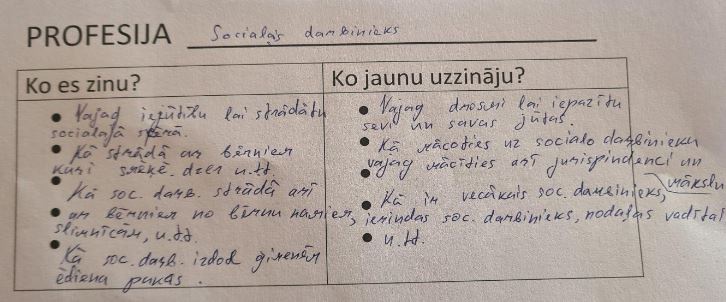 PROFESIJA Sociālais darbinieks
Ko es zinu?
Vajag iejūtību lai strādātu
sociālajā sfērā.
Kā strādā ar bērniem
kuri smēķē. dzer u.tt.
Kā soc. darb. strādā arī
ar bērniem no bērnu namiem,
slimnīcām, u.tt.
Kā soc. darb. izdod ģimenēm
ēdiena pakas.
Ko jaunu uzzināju?
Vajag drosmi lai iepazītu
sevi un savas jūtas.
Kā mācoties uz sociālo darbinieku
vajag mācīties arī jurispindenci un
mākslu
Kā ir vecākais soc. darbinieks,
ierindas soc. darbinieks, nodaļas vadītāi
u.tt.